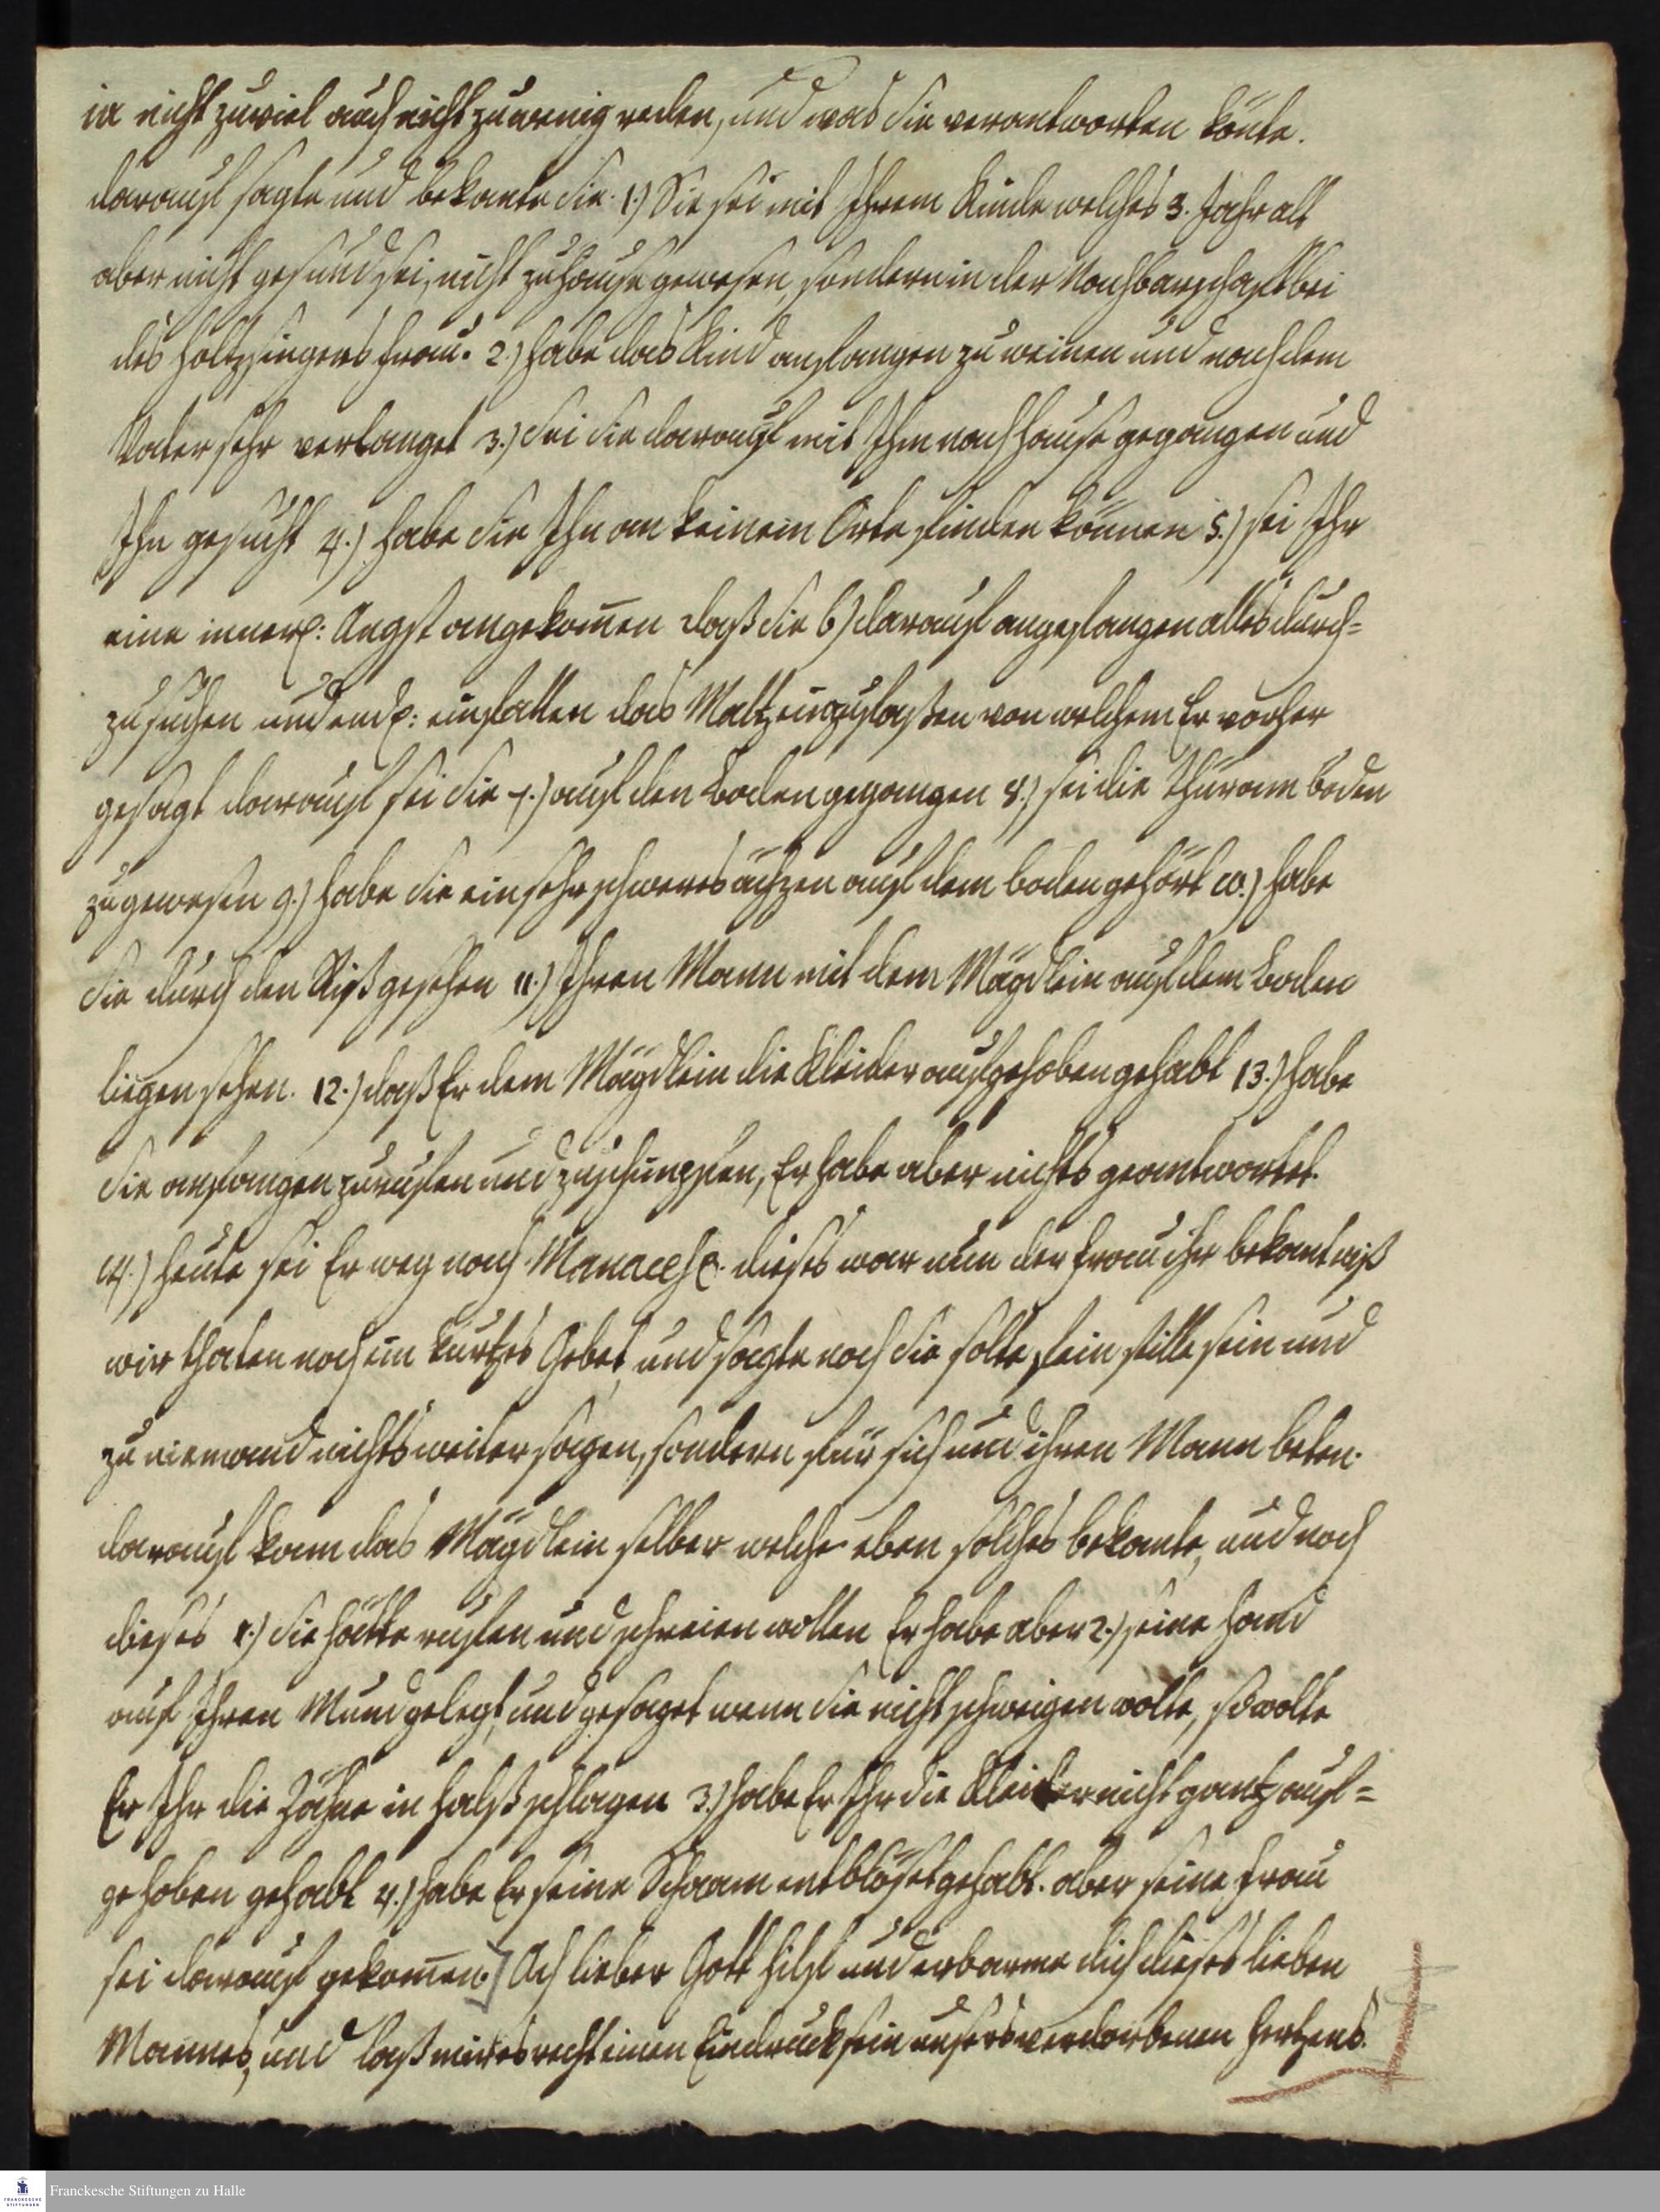 ia nicht zuviel auch nicht zu wenig reden, und was Sie verantworten könte.
darauf sagte und bekante Sie. 1.) Sie sei mit Ihrem Kinde welches 3. Jahr alt
aber nicht gesund sei, nicht zu Hause gewesen, sondern in der Nachbarschaft bei
des Holtzsingers Frau. 2.) habe das Kind anfangen zu weinen und nach dem
Vater sehr verlanget 3.) Sei Sie darauf mit Ihm nach Hause gegangen und
Ihn gesucht 4.) habe Sie Ihn an keinem Orte finden können 5.) sei Ihr
eine innerl: Angst angekom̄en daß Sie 6) darauf angefangen alles durch=
zusuchen und endl: eingefallen das Maltz von welchem Er vorher
gesagt darauf sei Sie 7.) auf den Boden gegangen 8.) sei die Thür am boden
zu gewesen 9.) habe Sie ein sehr schweres ächzen auf dem boden gehört 10.) habe
Sie durch den Riß gesehen 11.) Ihren Mann mit dem Mägdlein auf dem Boden
liegen sehen. 12.) daß Er dem Mägdlein die Kleider aufgehoben gehabt 13.) habe
Sie anfangen zu rufen und zu schimpfen, Er habe aber nichts geantwortet.
14.) Heute sei Er weg nach dieses war nun der Frau ihr bekantniß
wir thaten noch ein kurtzes Gebet, und sagte noch Sie solte fein stille sein und
zu niemand nichts weiter sagen, sondern für sich und ihren Mann beten.
darauf kam das Mägdlein selber welche eben solches bekante, und noch
dieses 1.) Sie hätte rufen und schreien wollen Er habe aber 2.) seine Hand
auf Ihren Mund gelegt, und gesaget wenn Sie nicht schweigen wolte, so wolte
Er Ihr die Zähne in Halß schlagen 3.) habe Er Ihr die Kleider nicht gantz auf=
gehoben gehabt 4.) habe Er seine Schaam entblöset gehabt. aber seine Frau
sei darauf gekom̄en.] Ach lieber Gott hilf und erbarme dich dieses lieben
Mannes, und laß mir es recht einen Eindruck sein unsers verdorbenen Hertzens.
Franckesche Stiftungen zu Halle
FRANCKESCHE
STIFTUNGEN